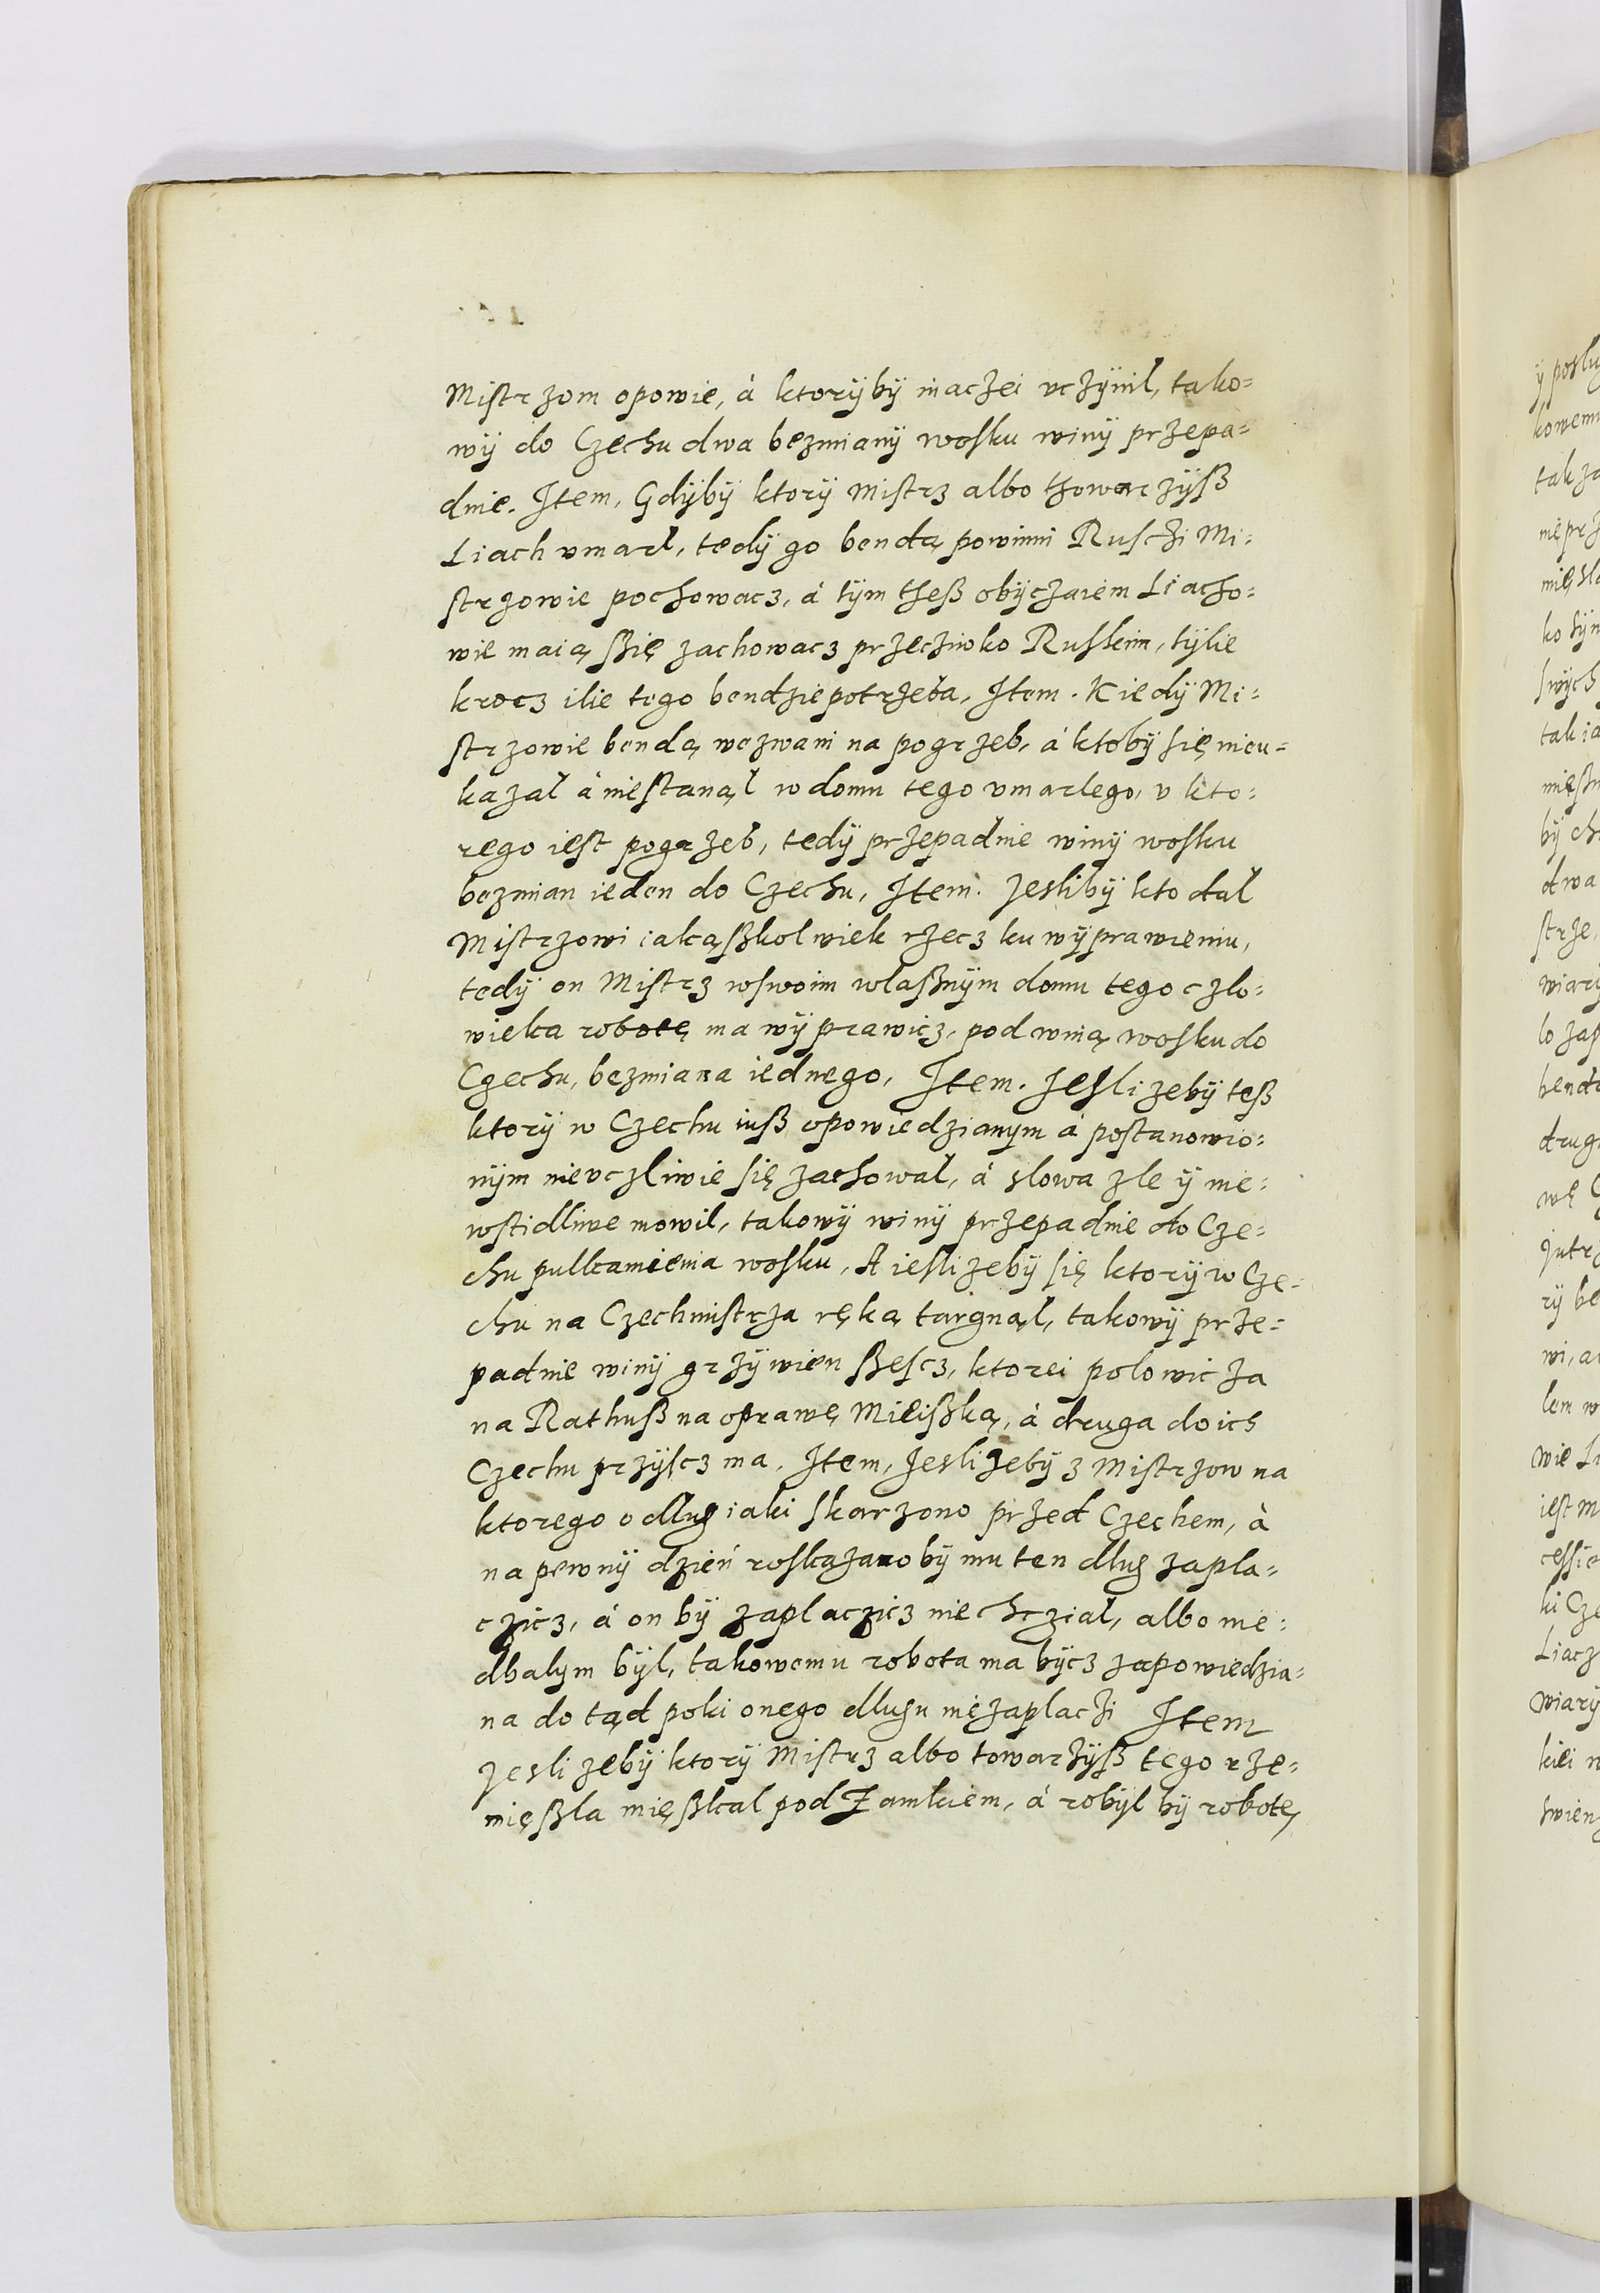 Mistrzom opowie, á ktorÿbÿ inaczei vczÿnil, tako=
wÿ do Czechu dwa bezmianÿ wosku winÿ przepa=
dnie. Item, Gdÿbÿ ktorÿ Mistrz albo thowarzÿsß
Liach vmarł, tedÿ go bendą powinni Rusczi Mi=
strzowie pochowacz, á tÿm theß obÿczaiem Liacho=
wie maią ßię zachowacz przecziwko Ruskim, tÿlie
krocz ilie tego bendzie potrzeba, Item. Kiedÿ Mi=
strzowie bendą wezwani na pogrzeb, á ktobÿ się nieu=
kazał á niestanął w domu tego vmarlego, v kto=
rego iest pogrzeb, tedÿ przepadnie winÿ wosku
bezmian ieden do Czechu, Item. Jeslibÿ kto dał
Mistrzowi iakąßkolwiek rzecz ku wÿprawieniu,
tedÿ on Mistrz wswoim wlaßnÿm domu tego czlo=
wieka robotę ma wÿprawicz, pod winą wosku do
Czechu, bezmiana iednego, Item. Jesli zebÿ teß
ktorÿ w Czechu iuß opowiedzianym á postanowio=
nÿm nieuczliwie się zachował, á slowa zle ÿ nie=
wstidliwe mowil, takowÿ winÿ przepadnie do Cze=
chu pulkamienia wosku, A iesli zebÿ się ktorÿ w Cze=
chu na Czechmistrza ręką targnął, takowÿ prze=
padnie winÿ grzÿwien ßescz, ktorei polowicza
na Rathuß na oprawę Mieißką, á druga do ich
Czechu przÿscz ma. Item, Jesli zebÿ z Mistrzow na
ktorego o dlug iaki skarzono przed Czechem, á
na pewnÿ dzień roskazanobÿ mu ten dlug zapla=
czicz, á on bÿ zaplaczicz nie chcział, albo nie=
dbalym bÿl, takowemu robota ma bÿcz zapowiedzia=
na do tąd poki onego dlugu niezaplaczi Item
Jesli zebÿ ktorÿ Mistrz albo towarzÿß tego rze=
mięßla mięßkal pod Zamkiem, á robÿl bÿ robotę,